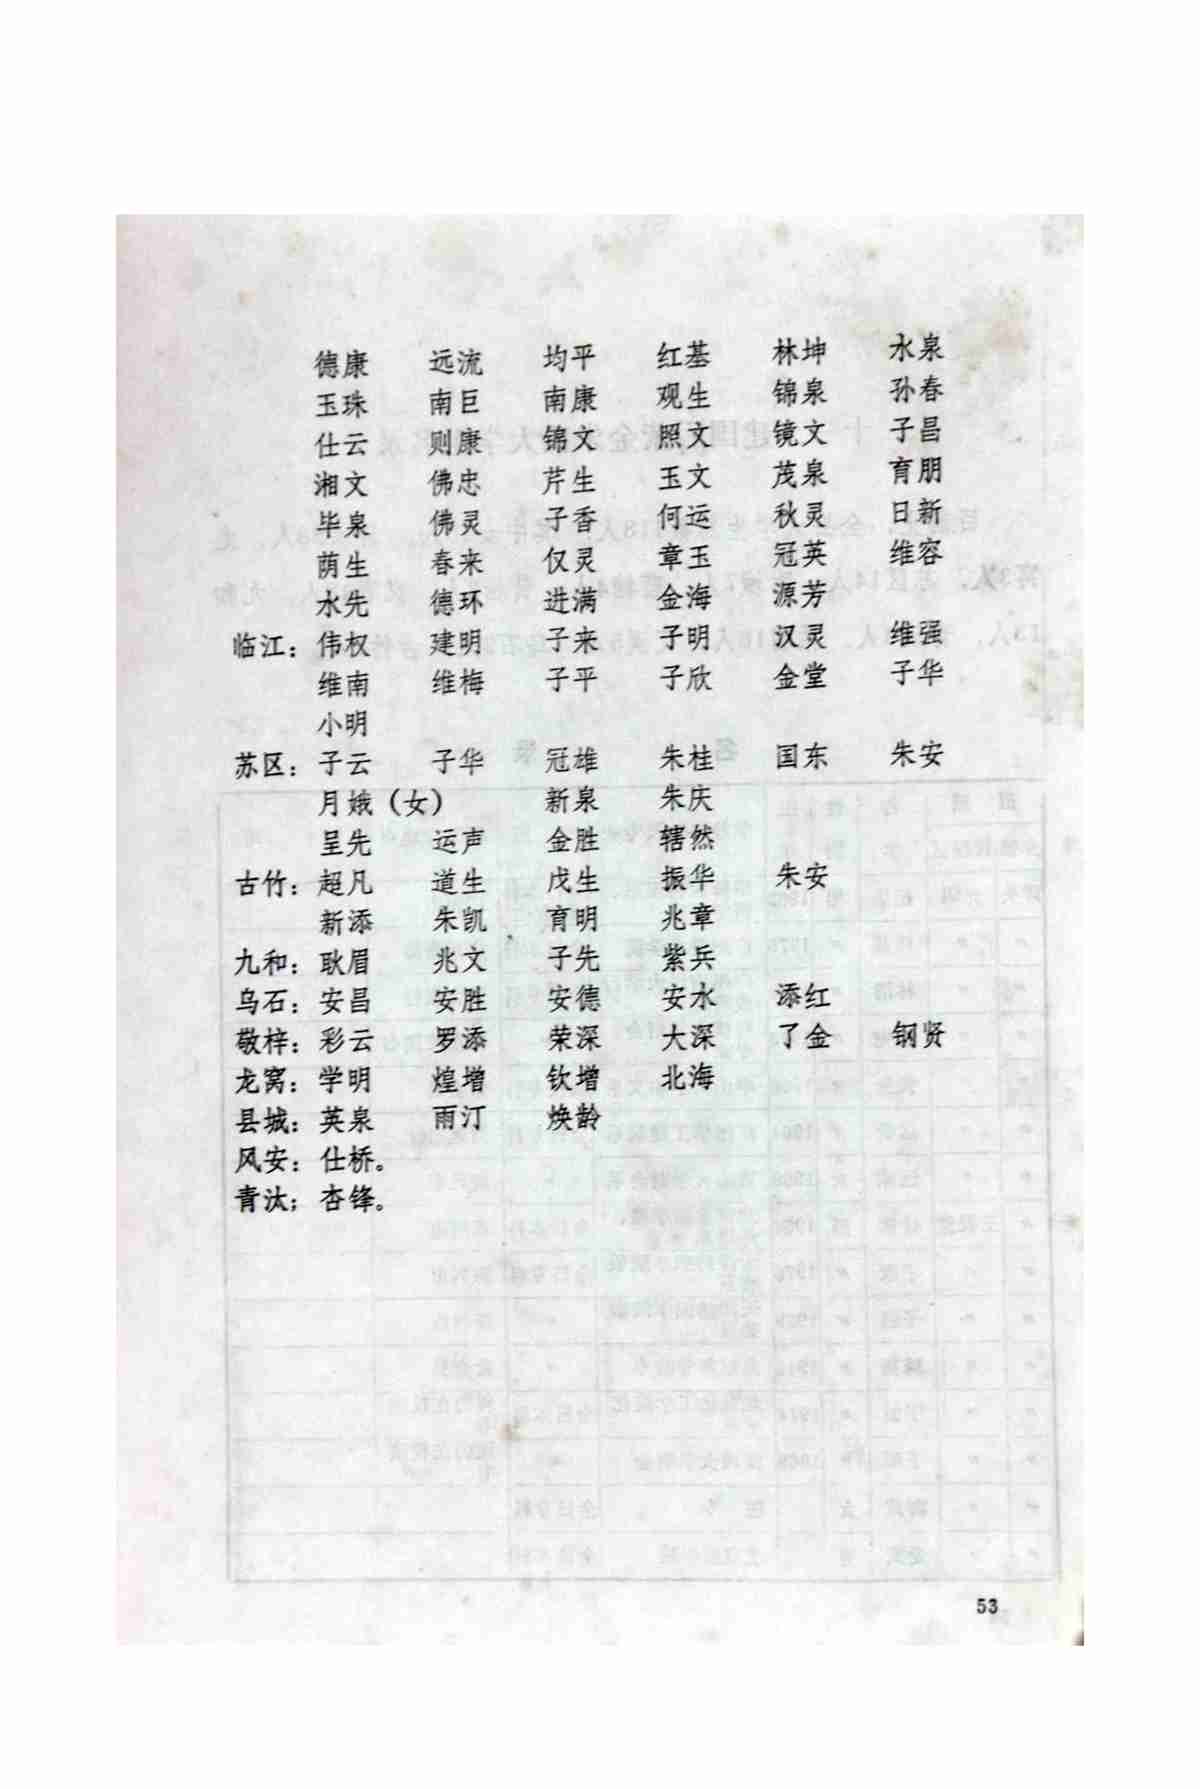 德康 远流 均平 红基 林坤 水泉
玉珠 南巨 南康 观生 锦泉 孙春
仕云 则康 锦文 照文 镜文 子昌
湘文 佛忠 芹生 玉文 茂泉 育朋
毕泉 佛灵 子香 何运 秋灵 日新
荫生 春来 仅灵 章玉 冠英 维容
水先 德环 进满 金海 源芳
临江：伟权 建明 子来 子明 汉灵 维强
维南 维梅 子平 子欣 金堂 子华
小明
苏区：子云 子华 冠雄 朱桂 国东 朱安
月娥（女） 新泉 朱庆
呈先 运声 金胜 辖然
古竹：超凡 道生 戊生 振华 朱安
新添 朱凯 育明 兆章
九和：耿眉 兆文 子先 紫兵
乌石：安昌 安胜 安德 安水 添红
敬梓：彩云 罗添 荣深 大深 了金 钢贤
龙窝：学明 煌增 钦增 北海
县城：英泉 雨汀 焕龄
风安：仕桥。
青汰；杏锋。
53